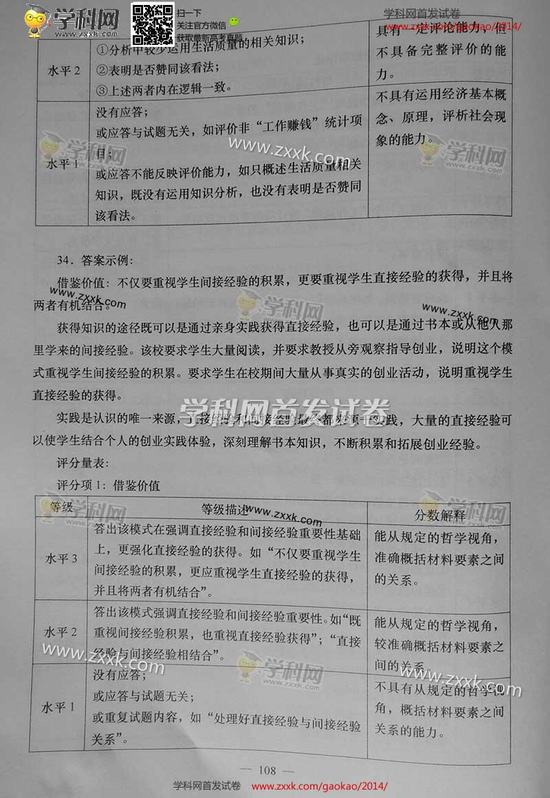 学科网
zxxk.com
扫一下
关注官方微信
获取最新高考真题
学科网首发试卷
www.zxxk.com/gaokao/2014/
水平2
①分析中较少运用生活质量的相关知识；
②表明是否赞同该看法；
③上述两者内在逻辑一致。
具有一定评论能力，但
不具备完整评价的能
力。
水平1
没有应答；
或应答与试题无关，如评价非“工作赚钱”统计项
目；
或应答不能反映评价能力，如只概述生活质量相关
知识，既没有运用知识分析，也没有表明是否赞同
该看法。
不具有运用经济基本概
念、原理，评析社会现
象的能力。
34．答案示例：
借鉴价值：不仅要重视学生间接经验的积累，更要重视学生直接经验的获得，并且将
两者有机结合。
获得知识的途径既可以是通过亲身实践获得直接经验，也可以是通过书本或从他人那
里学来的间接经验。该校要求学生大量阅读，并要求教授从旁观察指导创业，说明这个模
式重视学生间接经验的积累。要求学生在校期间大量从事真实的创业活动，说明重视学生
直接经验的获得。
学科网首发试卷
实践是认识的唯一来源，直接经验和间接经验
实践，大量的直接经验可
以使学生结合个人的创业实践体验，深刻理解书本知识，不断积累和拓展创业经验。
评分量表：
评分项1：借鉴价值
等级
等级描述
分数解释
水平3
答出该模式在强调直接经验和间接经验重要性基础
上，更强化直接经验的获得。如“不仅要重视学生
间接经验的积累，更应重视学生直接经验的获得，
并且将两者有机结合”。
能从规定的哲学视角，
准确概括材料要素之间
的关系。
水平2
答出该模式强调直接经验和间接经验重要性。如“既
重视间接经验积累，也重视直接经验获得”；“直接
经验与间接经验相结合”。
能从规定的哲学视角，
较准确概括材料要素之
间的关系。
水平1
没有应答；
或应答与试题无关；
或重复试题内容，如“处理好直接经验与间接经验
关系”。
不具有从规定的哲学视
角，概括材料要素之间
关系的能力。
www.zxxk.com
— 108 —
学科网首发试卷
www.zxxk.com/gaokao/2014/